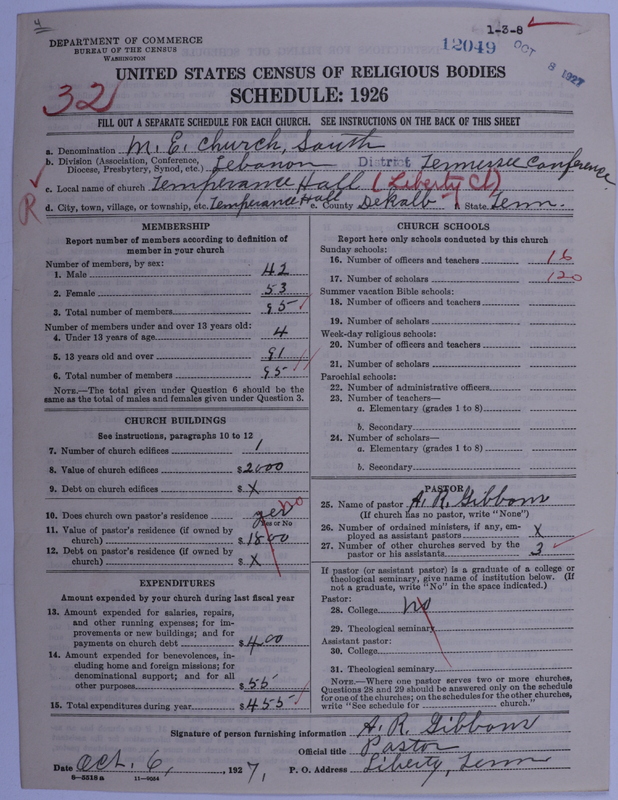 4
1-3-8
DEPARTMENT OF COMMERCE
BUREAU OF THE CENSUS
WASHINGTON
12049
OCT 8 1927
UNITED STATES CENSUS OF RELIGIOUS BODIES
SCHEDULE: 1926
32
FILL OUT A SEPARATE SCHEDULE FOR EACH CHURCH. SEE INSTRUCTIONS ON THE BACK OF THIS SHEET
a. Denomination M. E. Church, South
b. Division (Association, Conference, Diocese, Presbytery, Synod, etc.) Lebanon District Tennessee Conference
c. Local name of church Temperance Hall (Liberty Ct)
R
d. City, town, village, or township, etc. Temperance Hall e. County Dekalb f. State Tenn.
MEMBERSHIP
Report number of members according to definition of
member in your church
Number of members, by sex:
1. Male 42
2. Female 53
3. Total number of members 95
Number of members under and over 13 years old:
4. Under 13 years of age 4
5. 13 years old and over 91
6. Total number of members 95
NOTE.—The total given under Question 6 should be the
same as the total of males and females given under Question 3.
CHURCH BUILDINGS
See instructions, paragraphs 10 to 12
7. Number of church edifices 1
8. Value of church edifices $2000
9. Debt on church edifices $ X
10. Does church own pastor's residence yes no
Yes or No
11. Value of pastor's residence (if owned by
church) $1800
12. Debt on pastor's residence (if owned by
church) $ X
EXPENDITURES
Amount expended by your church during last fiscal year
13. Amount expended for salaries, repairs,
and other running expenses; for im-
provements or new buildings; and for
payments on church debt $400
14. Amount expended for benevolences, in-
cluding home and foreign missions; for
denominational support; and for all
other purposes $55
15. Total expenditures during year $455
CHURCH SCHOOLS
Report here only schools conducted by this church
Sunday schools:
16. Number of officers and teachers 16
17. Number of scholars 120
Summer vacation Bible schools:
18. Number of officers and teachers
19. Number of scholars
Week-day religious schools:
20. Number of officers and teachers
21. Number of scholars
Parochial schools:
22. Number of administrative officers
23. Number of teachers—
a. Elementary (grades 1 to 8)
b. Secondary
24. Number of scholars—
a. Elementary (grades 1 to 8)
b. Secondary
PASTOR
25. Name of pastor A. R. Gibbons
(If church has no pastor, write "None")
26. Number of ordained ministers, if any, em-
ployed as assistant pastors X
27. Number of other churches served by the
pastor or his assistants 3
If pastor (or assistant pastor) is a graduate of a college or
theological seminary, give name of institution below. (If
not a graduate, write "No" in the space indicated.)
Pastor:
28. College no
29. Theological seminary
Assistant pastor:
30. College
31. Theological seminary
NOTE.—Where one pastor serves two or more churches,
Questions 28 and 29 should be answered only on the schedule
for one of the churches; on the schedules for the other churches,
write "See schedule for church."
Signature of person furnishing information A. R. Gibbons
Official title Pastor
Date Oct. 6, 1927, P. O. Address Liberty, Tenn
8-5518 a 11-9064